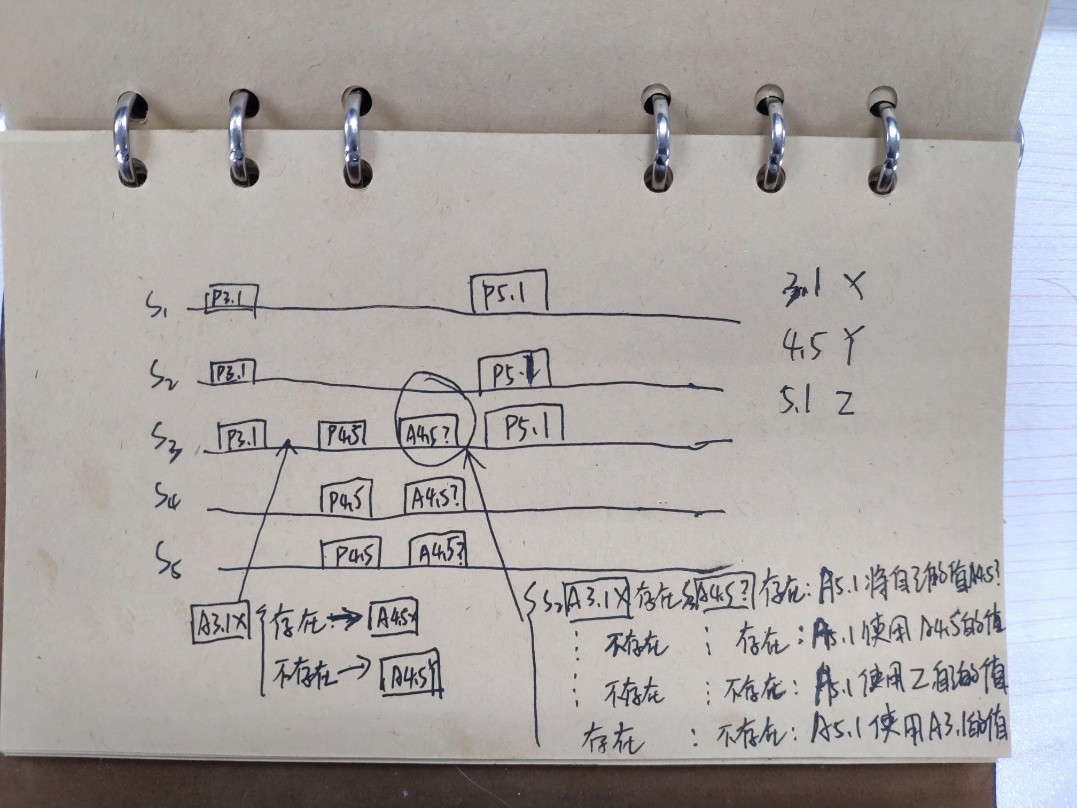 S₁ P3.1 P5.1
S₂ P3.1 P5.1
S₃ P3.1 P4.5 A4.5? P5.1
S₄ P4.5 A4.5?
S₅ P4.5 A4.5?
3.1 X
4.5 Y
5.1 Z
A3.1X 存在 → A4.5X
不存在 → A4.5Y
S₂ A3.1X 存在 S₃ A4.5? 存在: A5.1将自己的值A4.5?
⋮ 不存在 ⋮ 存在: A5.1使用A4.5的值
⋮ 不存在 ⋮ 不存在: A5.1使用Z自己的值
存在 : 不存在: A5.1使用A3.1的值